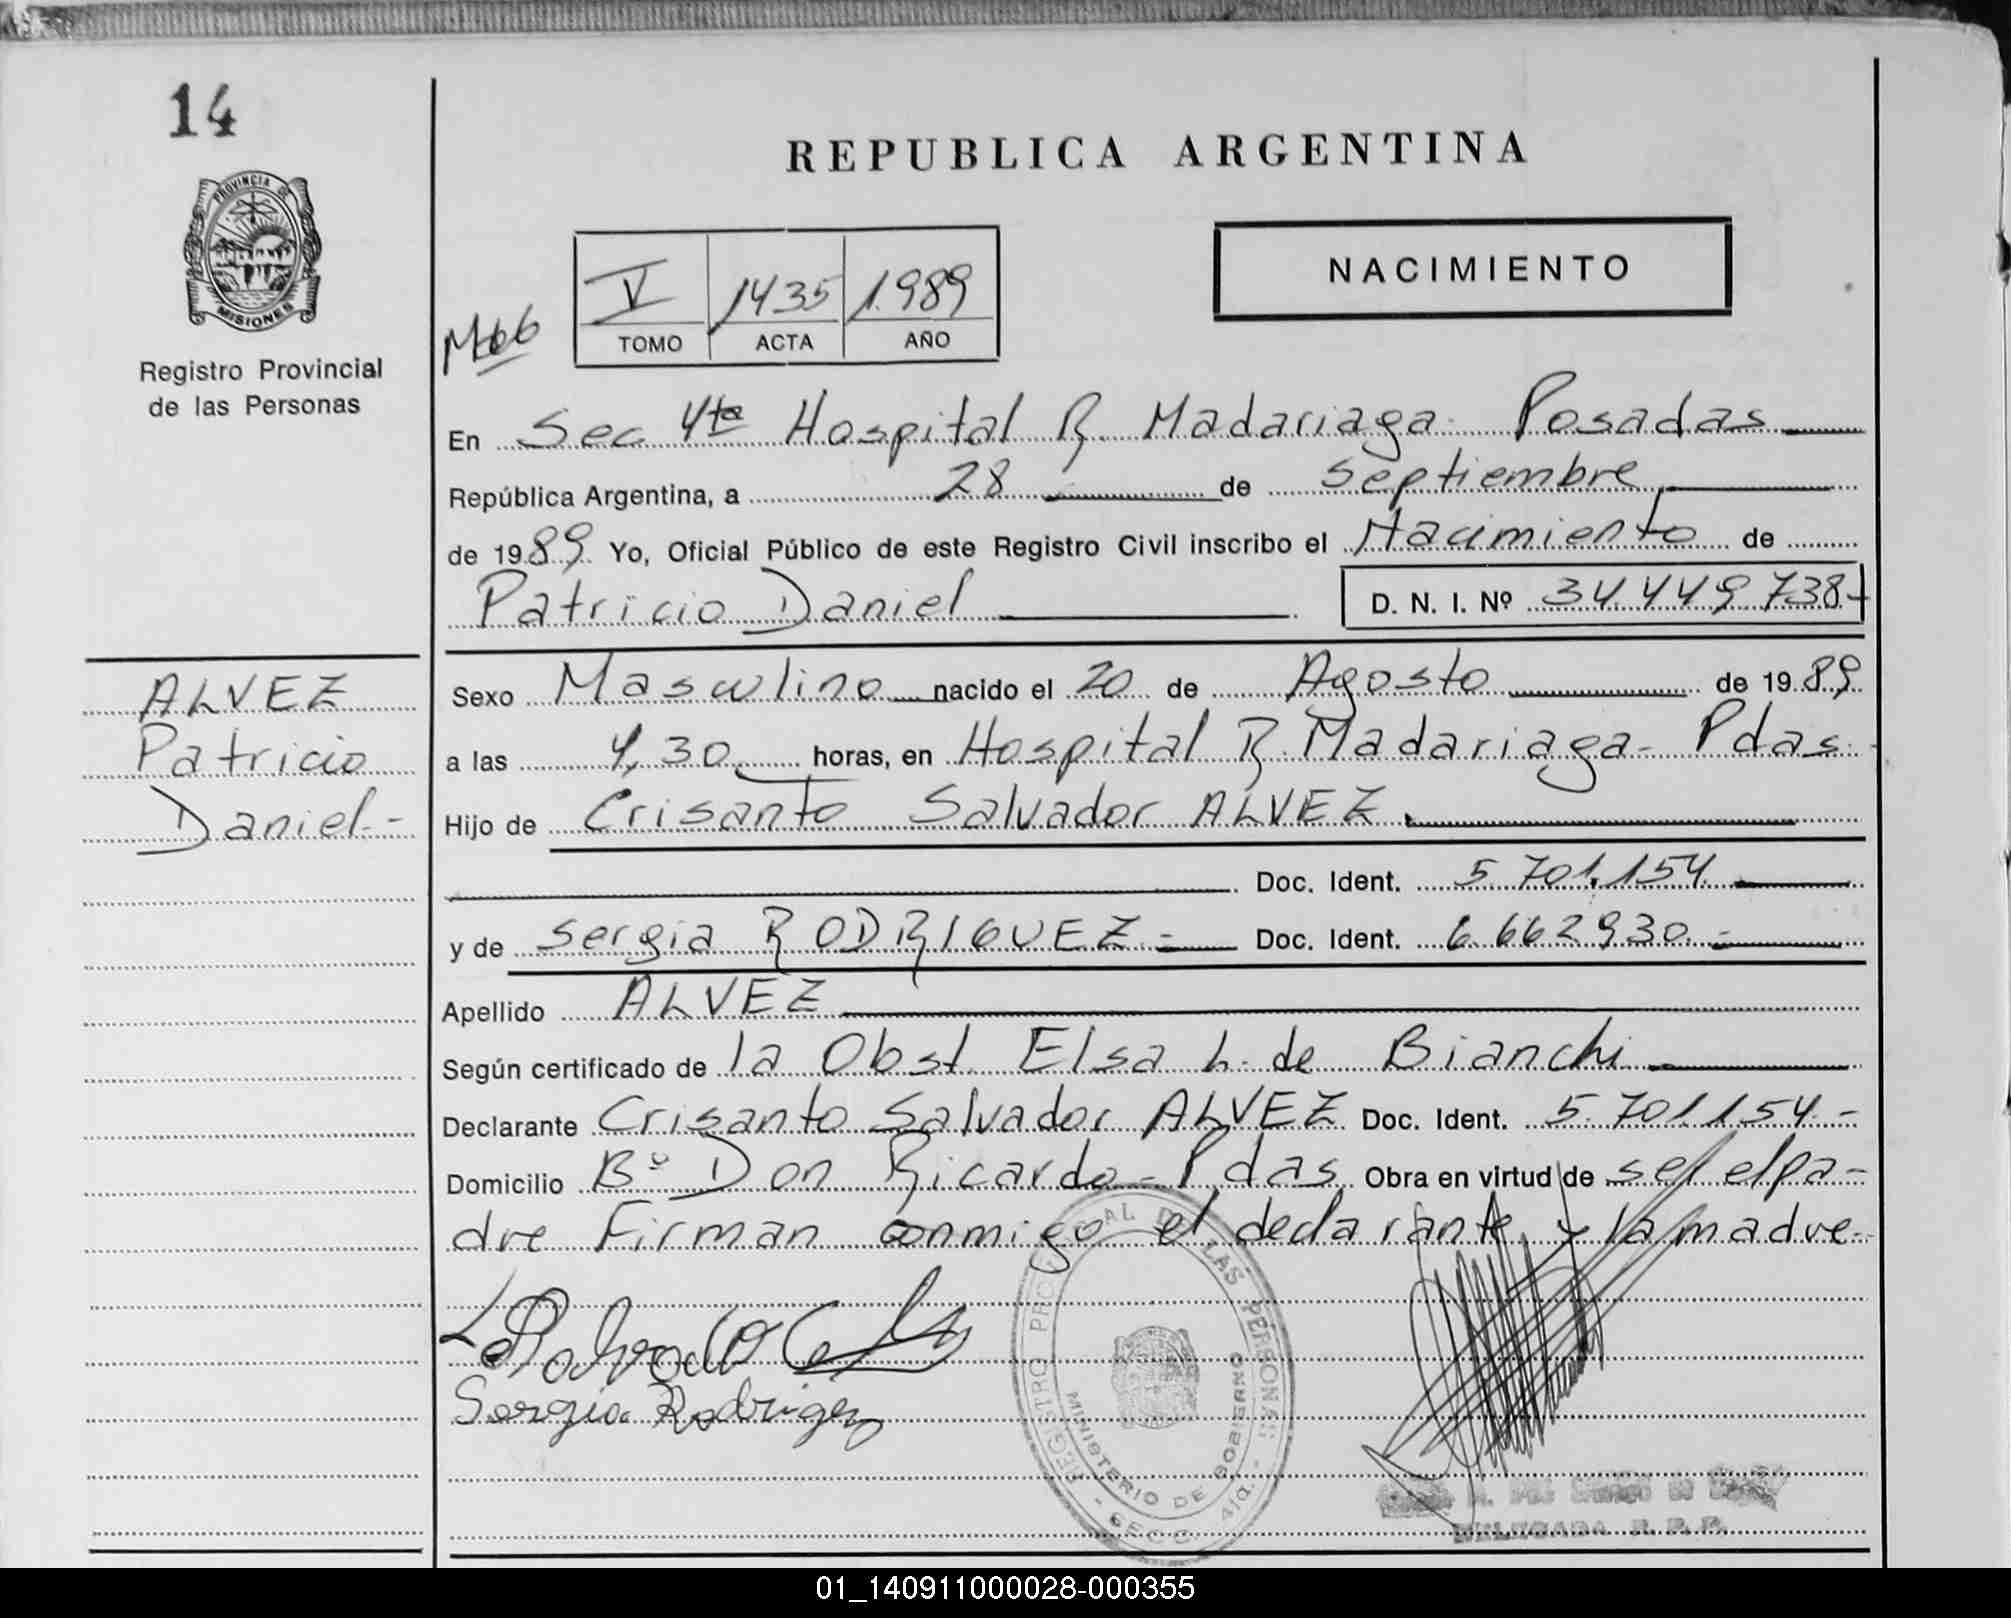 14
REPUBLICA ARGENTINA
PROVINCIA DE
MISIONES
Registro Provincial
de las Personas
NACIMIENTO
V 1435 1.989
TOMO ACTA AÑO
En Sec 4ta Hospital R. Madariaga. Posadas
República Argentina, a 28 de septiembre
de 1989 Yo, Oficial Público de este Registro Civil inscribo el Nacimiento de
Patricio Daniel D. N. I. Nº 34.449.738-
ALVEZ
Patricio
Daniel.-
Sexo Masculino nacido el 20 de Agosto de 1989
a las 4,30 horas, en Hospital R. Madariaga- Pdas.
Hijo de Crisanto Salvador ALVEZ.
Doc. Ident. 5.701.154
y de Sergia RODRIGUEZ.- Doc. Ident. 6.662930.-
Apellido ALVEZ
Según certificado de la Obst. Elsa L. de Bianchi
Declarante Crisanto Salvador ALVEZ Doc. Ident. 5.701.154.-
Domicilio Bº Don Ricardo - Pdas Obra en virtud de ser el pa-
dre Firman conmigo el declarante y la madre.-
Sergia Rodriguez
REGISTRO PROVINCIAL DE LAS PERSONAS
MINISTERIO DE GOBIERNO
- SECC. 4ta. -
DELEGADA R. P. P.
01_140911000028-000355